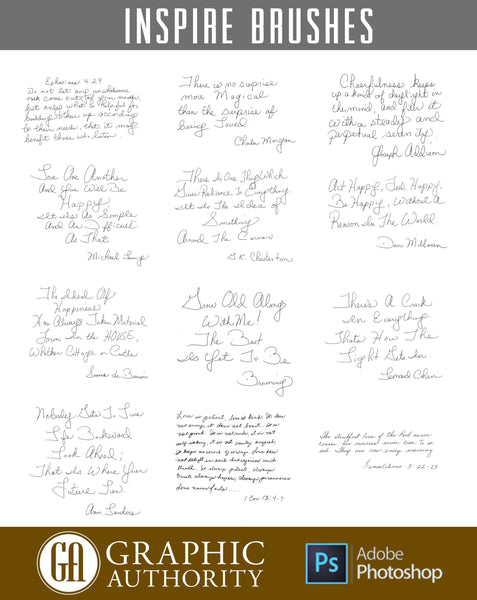 INSPIRE BRUSHES
Ephesians 4:29
Do not let any unwholesome
talk come out of your mouths,
but only what is helpful for
building others up according
to their needs, that it may
benefit those who listen.
There is no surprise
more Magical
than the surprise of
being Loved
Charles Morgan
Cheerfulness keeps
up a kind of daylight in
the mind, and fills it
with a steady and
perpetual serenity
Joseph Addison
Love One Another
And You Will Be
Happy
It Is As Simple
And As Difficult
As That
Michael Leunig
There Is One Thing Which
Gives Radiance To Everything
It Is The Idea of
Something
Around The Corner
G.K. Chesterton
Act Happy, Feel Happy,
Be Happy, Without A
Reason In The World.
Dan Millman
The Ideal Of
Happiness
Has Always Taken Material
Form In the HOUSE,
Whether Cottage or Castle.
Simone de Beauvoir
Grow Old Along
With Me!
The Best
Is Yet To Be
Browning
There's A Crack
In Everything
That's How The
Light Gets In
Leonard Cohen
Nobody Gets To Live
Life Backward
Look Ahead;
That Is Where Your
Future Lies
Ann Landers
Love is patient, love is kind. It does
not envy, it does not boast, it is
not proud. It is not rude, it is not
self-seeking, it is not easily angered,
it keeps no record of wrongs. Love does
not delight in evil but rejoices with
truth. It always protects, always
trusts, always hopes, always perseveres
Love never fails....
1 Cor 13:4-7
The steadfast love of the Lord never
ceases, his mercies never come to an
end. They are new every morning
Lamentations 3:22-23
GA
GRAPHIC
AUTHORITY
Ps
Adobe
Photoshop